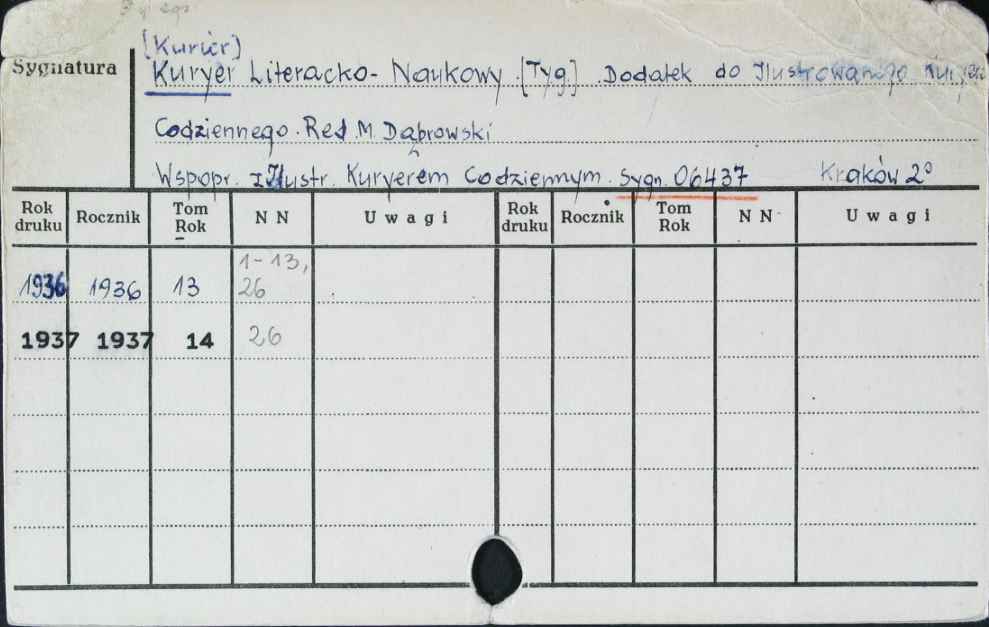 [Kurier]
Sygnatura
Kuryer Literacko-Naukowy. [Tyg.] Dodatek do Ilustrowanego Kuryera
Codziennego. Red. M. Dąbrowski
Wspopr. z Ilustr. Kuryerem Codziennym. Sygn. 06437 Kraków 2°
Rok druku Rocznik Tom Rok N N Uwagi Rok druku Rocznik Tom Rok N N Uwagi
1936 1936 13 1-13, 26
1937 1937 14 26